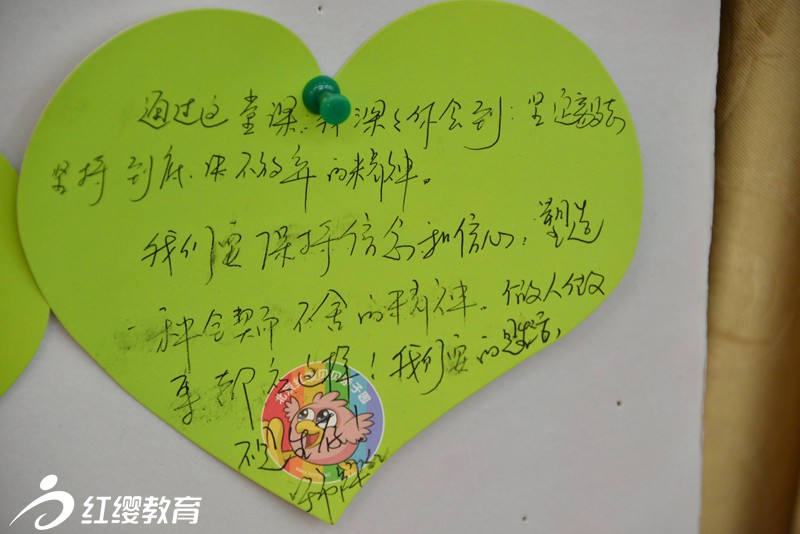 通过这堂课,我深深体会到:坚定毅志
坚持到底.决不放弃的精神。
我们要保持信念和信心,塑造
一种锲而不舍的精神。做人做
事都应这样!我们要的是生活,
不是生存!
红缨教育